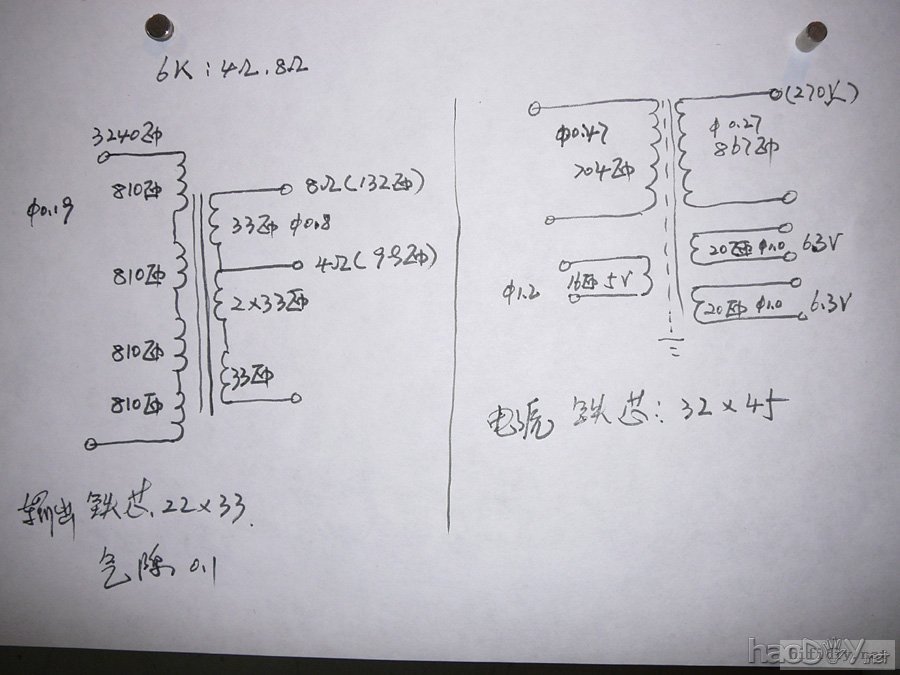 6K：4Ω.8Ω
3240匝
810匝
φ0.19
810匝
810匝
810匝
8Ω(132匝)
33匝 φ0.8
4Ω(99匝)
2×33匝
33匝
输出 铁芯.22×33.
气隙 0.1
φ0.47
204匝
φ1.2
16匝 5V
(270V)
φ0.27
867匝
20匝 φ1.0 6.3V
20匝 φ1.0 6.3V
电源 铁芯：32×45
haoDIY
hifidiy.net